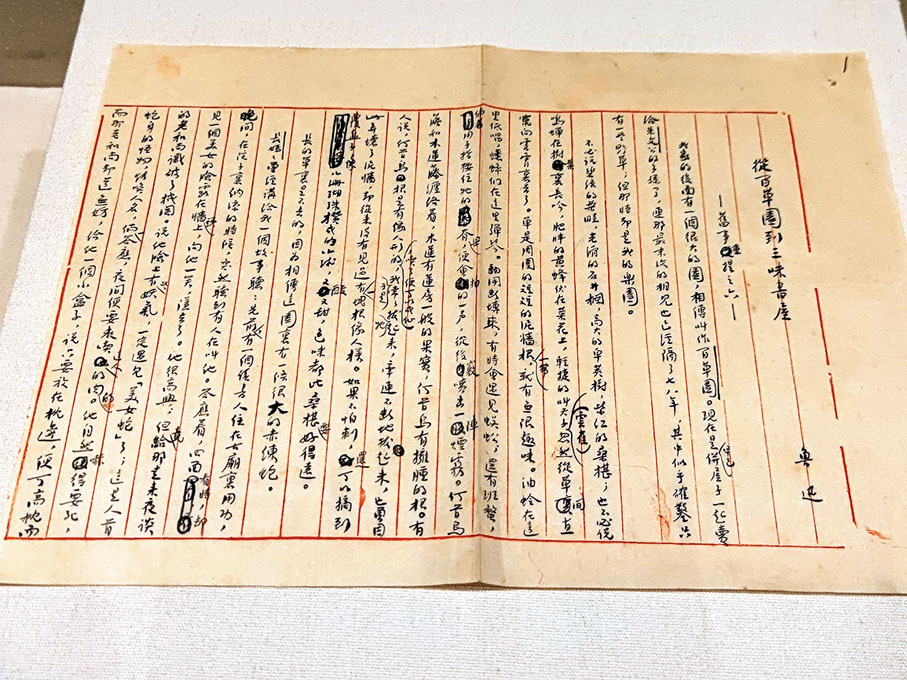 1
從百草園到三味書屋
——舊事重提之六——
魯迅
我家的後面有一個很大的園,相傳叫作百草園。現在是早已併屋子一起賣
給朱文公的子孫了,連那最末次的相見也已經隔了七八年,其中似乎確鑿只
有一些野草;但那時卻是我的樂園。
不必說碧綠的菜畦,光滑的石井欄,高大的皂莢樹,紫紅的桑椹;也不必說
鳴蟬在樹葉裏長吟,肥胖的黃蜂伏在菜花上,輕捷的叫天子(雲雀)忽然從草間直
竄向雲霄裏去了。單是周圍的短短的泥牆根一帶,就有無限趣味。油蛉在這
里低唱,蟋蟀們在這里彈琴。翻開斷磚來,有時會遇見蜈蚣;還有斑蝥,
倘若用手指按住牠的脊梁,便會拍的一聲,從後竅噴出一陣煙霧。何首烏
藤和木蓮藤纏絡着,木蓮有蓮房一般的果實,何首烏有擁腫的根。有
人說,何首烏根是有像人形的,吃了便可以成仙,我於是常常拔牠起來,牽連不斷地拔起來,也曾因
此弄壞了泥牆,卻從來沒有見過有一塊根像人樣。如果不怕刺,還可以摘到
覆盆子,像小珊瑚珠攢成的小球,又酸又甜,色味都比桑椹要好得遠。
長的草裏是不去的,因為相傳這園裏有一條很大的赤練蛇。
長媽媽曾經講給我一個故事聽:先前,有一個讀書人住在古廟裏用功,
晚間,在院子裏納涼的時候,突然聽到有人在叫他。答應着,四面看時,卻
見一個美女的臉露在牆頭上,向他一笑,隱去了。他很高興;但竟給那走來夜談
的老和尚識破了機關。說他臉上有些妖氣,一定遇見「美女蛇」了;這是人首
蛇身的怪物,能喚人名,倘一答應,夜間便要來吃這人的肉的。他自然嚇得要死,
而那老和尚卻道無妨,給他一個小盒子,說只要放在枕邊,便可高枕而